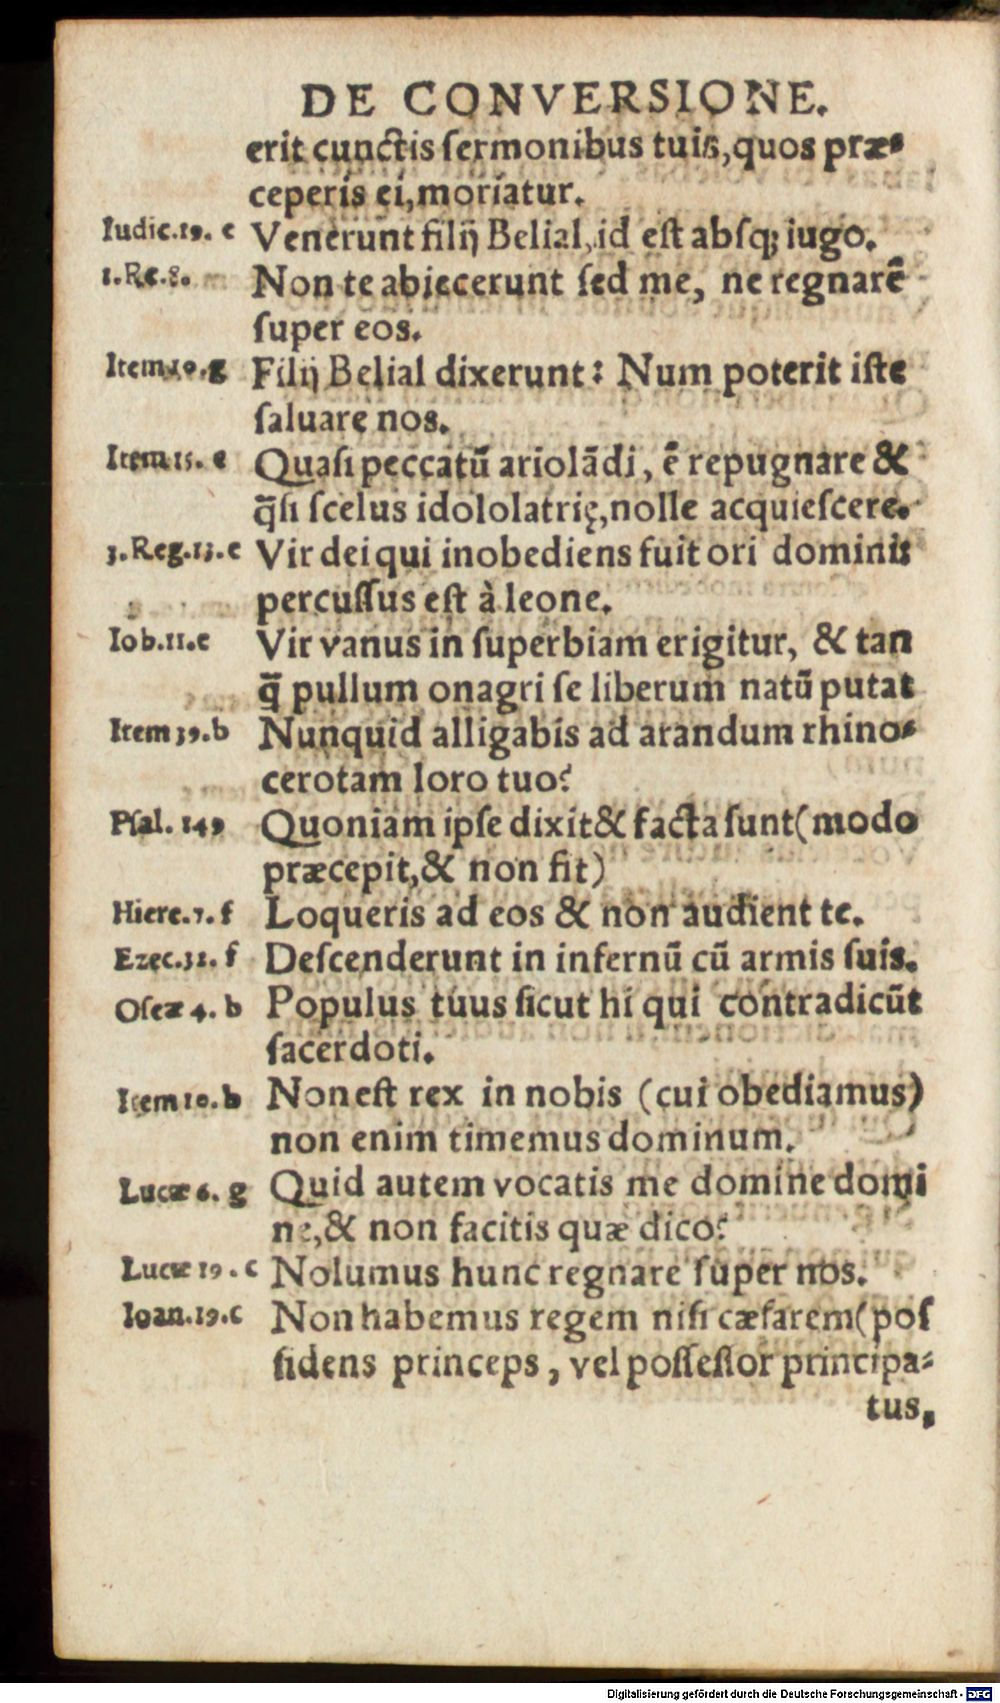 DE CONVERSIONE.
erit cunctis ſermonibus tuis, quos præ-
ceperis ei, moriatur.
Iudic.19. e Venerunt filij Belial, id eſt abſq; iugo.
1.Re.8. Non te abiecerunt ſed me, ne regnarē
ſuper eos.
Item 10.g Filij Belial dixerunt: Num poterit iſte
ſaluare nos.
Item 15. e Quaſi peccatū ariolādi, ē repugnare &
q̄ſi ſcelus idololatrię, nolle acquieſcere.
3.Reg.13.e Vir dei qui inobediens fuit ori domini:
percuſſus eſt à leone.
Iob.11.c Vir vanus in ſuperbiam erigitur, & tan
q̄ pullum onagri ſe liberum natū putat
Item 39.b Nunquid alligabis ad arandum rhino-
cerotam loro tuo?
Pſal. 149 Quoniam ipſe dixit & facta ſunt (modo
præcepit, & non fit)
Hiere.7. f Loqueris ad eos & non audient te.
Ezec.32. f Deſcenderunt in infernū cū armis ſuis.
Oſeæ 4. b Populus tuus ſicut hi qui contradicūt
ſacerdoti.
Item 10.b Non eſt rex in nobis (cui obediamus)
non enim timemus dominum.
Lucæ 6. g Quid autem vocatis me domine domi
ne, & non facitis quæ dico?
Lucæ 19. c Nolumus hunc regnare ſuper nos.
Ioan.19.c Non habemus regem niſi cæſarem (poſ
ſidens princeps, vel poſſeſſor principa-
tus,
Digitalisierung gefördert durch die Deutsche Forschungsgemeinschaft - DFG